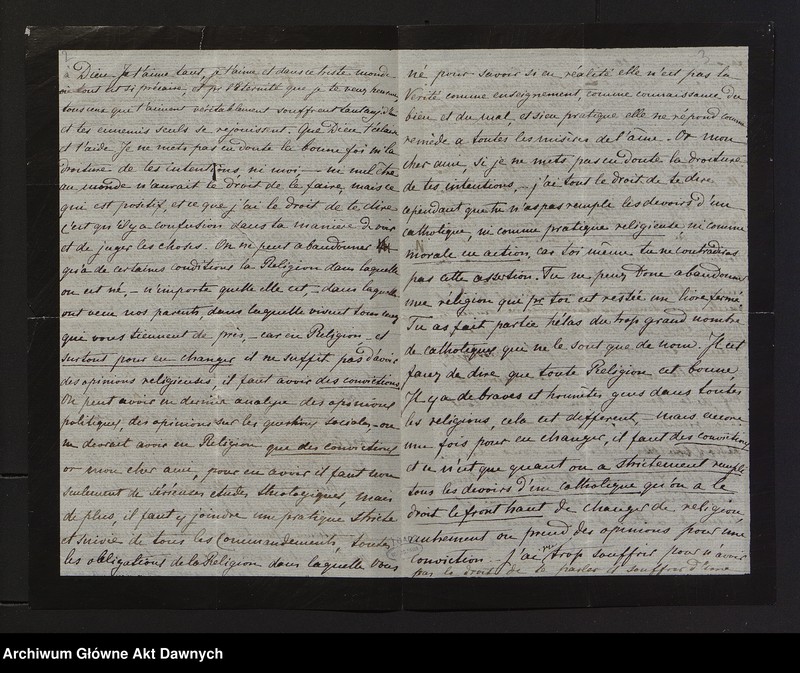 à Dieu Je t'aime tant, je t'aime et dans ce triste monde
où tout est si précaire, et pr l'Eternité que je te veux heureux
tous ceux que t'aiment véritablement souffrent tant aujd'hui
et tes ennemis seuls se rejouissent. Que Dieu t'éclaire
et t'aide. Je ne mets pas en doute la bonne foi ni la
droiture de tes intentions, ni moi, ni
au monde n'aurait le droit de le faire, mais ce
qui est positif, et ce que j'ai le droit de te dire
c'est qu'il y a confusion dans ta manière de voir
et de juger les choses. On ne peut abandonner
qu'à de certaines conditions la Religion dans laquelle
on est né, - n'importe quelle elle est, - dans laquelle
ont vécu nos parents, dans laquelle vivent tous ceux
qui vous tiennent de près, - car en Religion - et
surtout pour en changer il ne suffit pas d'avoir
des opinions religieuses, il faut avoir des convictions
On peut avoir en dernière analyse des opinions
politiques, des opinions sur les questions sociales, - on
ne devrait avoir en Religion que des convictions
or mon cher ami, pour en avoir il faut non
seulement de sérieuses etudes théologiques, mais
de plus, il faut y joindre une pratique stricte
et suivie de tous les Commandements, toutes
les obligations de la Religion dans laquelle vous
né pour savoir si en réalité elle n'est pas la
Vérité comme enseignement, comme connaissance du
bien et du mal et si en pratique elle ne répond comme
remède a toutes les misères de l'ame. Or mon
cher ami, si je ne mets pas en doute la droiture
de tes intentions, - j'ai tout le droit de te dire
cependant que tu n'as pas remple les devoirs d'un
catholique, ni comme pratique religieuse ni comme
morale en action, car toi même tu ne contrediras
pas cette assertion. Tu ne peux donc abandonner
une réligion qui pr toi est restée un livre fermé.
Tu as fait partie hélas du trop grand nombre
de catholiques qui ne le sont que de nom. Il est
faux de dire que toute Religion est bonne,
Il y a de braves et honnêtes gens dans toutes
les religions, cela est différent, mais encore
une fois pour en changer, il faut des convictions
et ce n'est que quant on a strictement remple
tous les devoirs d'un catholique qu'on a le
droit le front haut de changer de religion
autrement on prend des opinions pour une
conviction - J'ai trop souffert pour n'avoir
pas le droit de te parler et souffrir d'une
Archiwum Główne Akt Dawnych